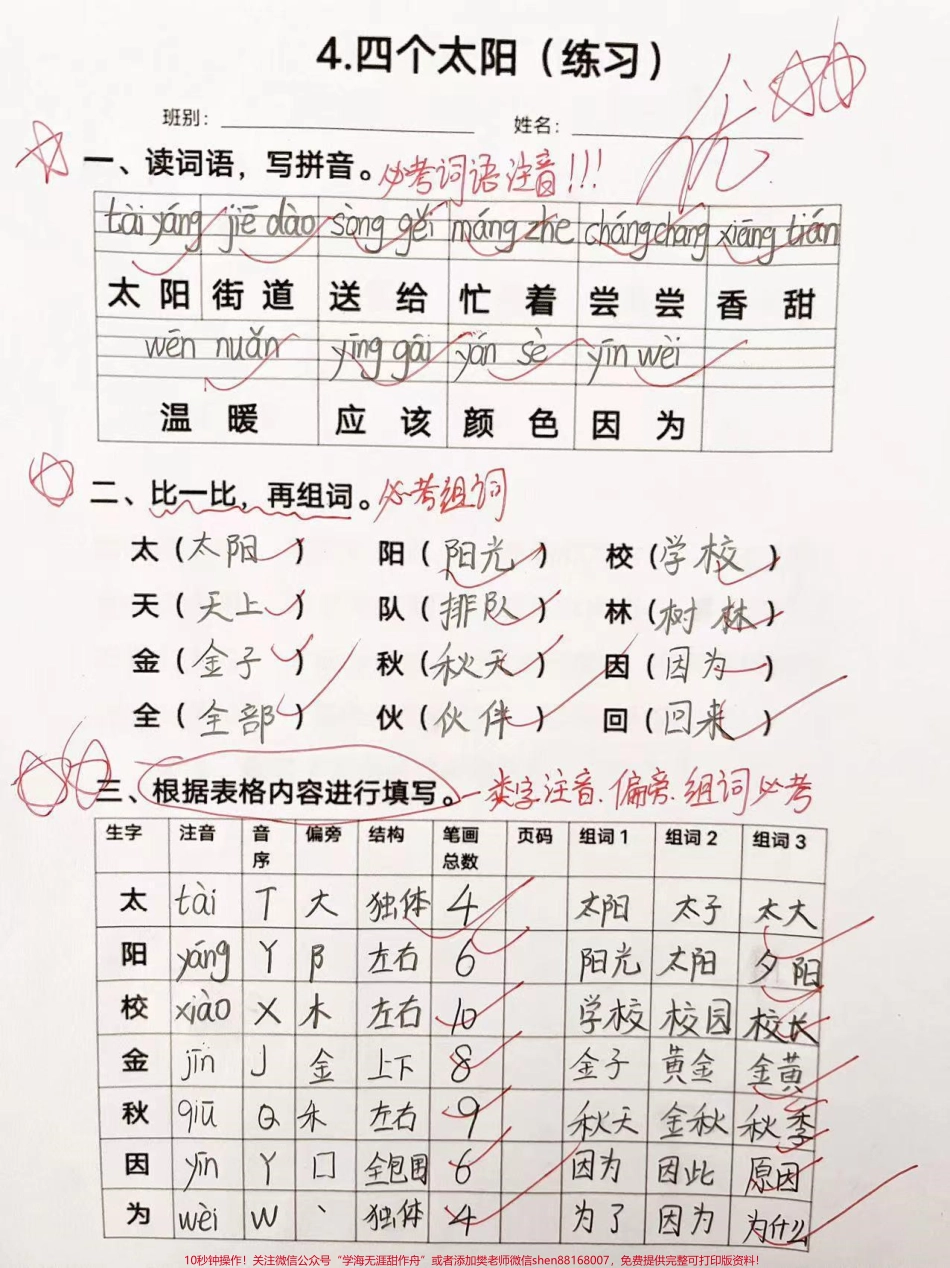 4.四个太阳（练习）
班别：
姓名：
优
一、读词语，写拼音。必考词语注音!!!
tài yáng jiē dào sòng gěi máng zhe cháng chang xiāng tián
太阳 街道 送给 忙着 尝尝 香甜
wēn nuǎn yīng gāi yán sè yīn wèi
温暖 应该 颜色 因为
二、比一比，再组词。必考组词
太（太阳） 阳（阳光） 校（学校）
天（天上） 队（排队） 林（树林）
金（金子） 秋（秋天） 因（因为）
全（全部） 伙（伙伴） 回（回来）
三、根据表格内容进行填写。一类字注音、偏旁、组词必考
生字 注音 音序 偏旁 结构 笔画总数 页码 组词1 组词2 组词3
太 tài T 大 独体 4 太阳 太子 太大
阳 yáng Y 阝 左右 6 阳光 太阳 夕阳
校 xiào X 木 左右 10 学校 校园 校长
金 jīn J 金 上下 8 金子 黄金 金黄
秋 qiū Q 禾 左右 9 秋天 金秋 秋季
因 yīn Y 囗 全包围 6 因为 因此 原因
为 wèi W 丶 独体 4 为了 因为 为什么
10秒钟操作！关注微信公众号“学海无涯甜作舟”或者添加樊老师微信shen88168007，免费提供完整可打印版资料！